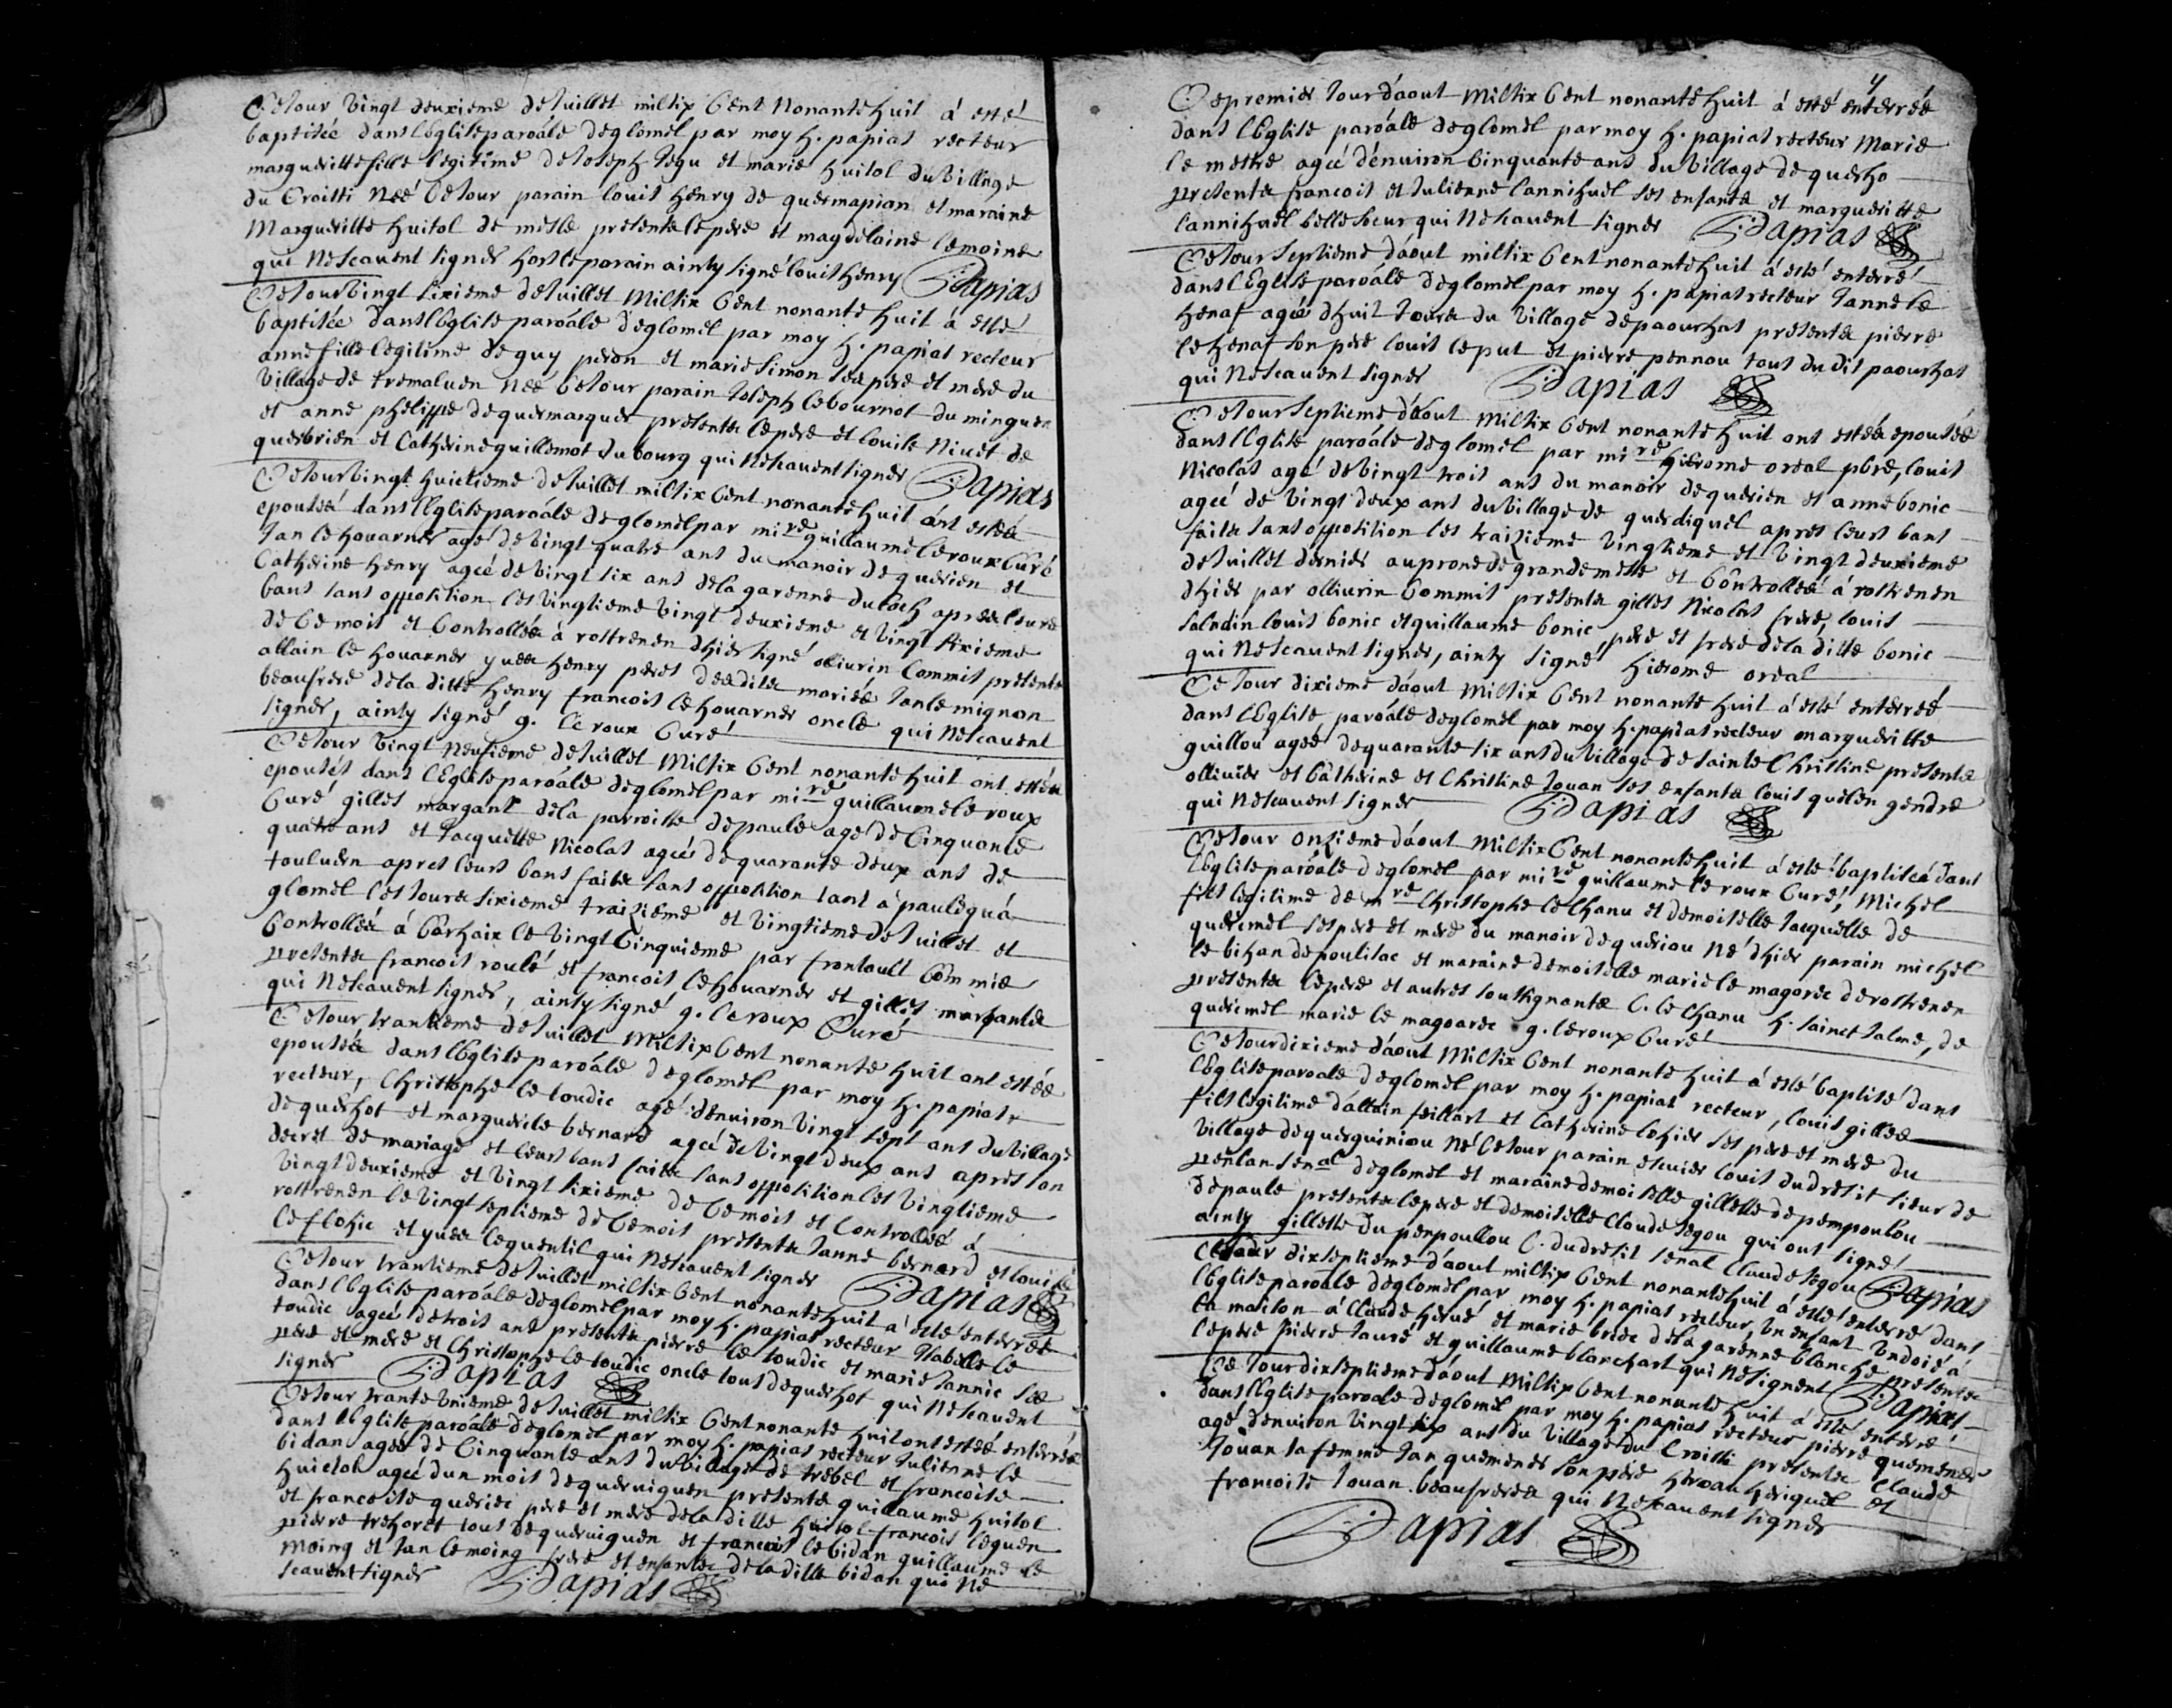 Ce Jour vingt deuxieme de Juillet mil six Cent nonante huit á esté
baptisée dans l'Eglise paroále de glomel par moy h. papias recteur
margueritte fille legitime de Joseph Jegu et marie huitol du village
du Croissti Neé Ce Jour parain louis henry de quermapian et maraine
Margueritte huitol de mesle presente le pere et magdelaine lemoine
qui Ne scavent signer hors le parain ainsy signé louis henry Papias
Ce Jour vingt sixieme de Juillet Mil six Cent nonante huit á esté
baptisée dans l'Eglise paroále de glomel par moy h. papias recteur
anne fille legitime de guy peron et marie simon ses pere et mere du
village de tremaluen Neé Ce Jour parain Joseph lebournot du minguen
et anne phelippe de quermarquer presente le pere et louise Nivet de
querbrien et Catherine guillemot du bourg qui Ne scavent signer Papias
Ce Jour vingt huictieme de Juillet mil six Cent nonante huit ont estéá
epouseé dans l'Eglise paroále de glomel par mire guillaume leroux Curé
Jan le houarner agé de vingt quatre ans du manoir de querien et
Catherine henry ageé de vingt six ans de la garenne du loch apres leurs
bans sans opposition les vingtieme vingt deuxieme et vingt sixieme
de Ce mois et Controllés á rostrenen d'hier signé olliurin Commis presente
allain le houarner yves henry peres des dits mariés Jan le mignon
beaufrere de la ditte henry francois le houarner oncle qui Ne scavent
signer, ainsy signé g. le roux Curé
Ce Jour vingt neufieme de Juillet Mil six Cent nonante huit ont estés
epousés dans l'Eglise paroále de glomel par mire guillaume le roux
Curé gilles margant de la parroisse de paule agé de Cinquante
quatre ans et Jacquette Nicolas ageé de quarante deux ans de
touluen apres leurs bans faits sans opposition tant á paule qu'á
glomel les Jours sixieme traizieme et vingtieme de Juillet et
Controlleé á Carhaix le vingt Cinquieme par frontault Commis
presente francois roulé et francois le houarner et gilles margante
qui Ne scavent signer, ainsy signé g. le roux Curé
Ce Jour trantieme de Juillet Mil six Cent nonante huit ont estée
epouseé dans l'Eglise paroále de glomel par moy h. papias
recteur, Christophe le loudic agé d'environ vingt sept ans du village
de querhot et marguerite bernard ageé de vingt deux ans apres son
decret de mariage et leurs bans faits sans opposition les vingtieme
vingt deuxieme et vingt sixieme de Ce mois et Controlleé á
rostrenen le vingt septieme de Ce mois presente Janne bernard et louise
le flohic et yves lequentil qui Ne scavent signer Papias
Ce Jour trantieme de Juillet mil six Cent nonante huit á esté enterreé
dans l'Eglise paroále de glomel par moy h. papias recteur Isabelle le
loudic ageé de trois ans presente pierre le loudic et marie Jannic ses
pere et mere et Christophe le loudic oncle tous de querhot qui Ne scavent
signer Papias
Ce Jour trante unieme de Juillet mil six Cent nonante huit ont esteé enterrés
dans l'Eglise paroále de glomel par moy h. papias recteur Julienne le
bidan ageé de Cinquante ans du village de trebel et francoise
huictol ageé d'un mois de querviguen presente guillaume huitol
et francoise queriec pere et mere de la ditte huitol francois leguen
pierre trehoret tous de querviguen et francois le bidan guillaume le
moing et Jan le moing frere et enfants de la ditte bidan qui Ne
scavent signer Papias
4
Ce premier Jour d'aout Mil six Cent nonante huit á esté enterrée
dans l'Eglise paroále de glomel par moy h. papias recteur Marie
le mestre ageé d'environ Cinquante ans du village de querho
presente francois et Julienne lannihuel ses enfants et margueritte
lannihuel belle soeur qui Ne scavent signer Papias
Ce Jour septieme d'aout mil six Cent nonante huit á esté enterré
dans l'Eglise paroále de glomel par moy h. papias recteur Janne le
henaf ageé d'huit Jours du village de paourhas presente pierre
le henaf son pere louis le put et pierre pennou tous du dit paourhas
qui Ne scavent signer Papias
Ce Jour septieme d'aout Mil six Cent nonante huit ont estéé epouséé
dans l'Eglise paroále de glomel par mire hierome oreal pbre, louis
Nicolas agé de vingt trois ans du manoir de querien et anne bonic
ageé de vingt deux ans du village de querdiquel apres leurs bans
faits sans opposition les traizieme vingtieme et vingt deuxieme
de Juillet dernier au prone de grande messe et Controlleé á rostrenen
d'hier par olliurin Commis presente gilles Nicolas frere, louis
saladin louis bonic et guillaume bonic, pere et frere de la ditte bonic
qui Ne scavent signer, ainsy signé hierome oreal
Ce Jour dixieme d'aout Mil six Cent nonante huit á esté enterreé
dans l'Eglise, paroále de glomel par moy h. papias recteur margueritte
guillou ageé de quarante six ans du village de sainte Christine presente
ollivier et Catherine et Christine Jouan ses enfants louis quelen gendre
qui Ne scavent signer Papias
Ce Jour onzieme d'aout Mil six Cent nonante huit á esté baptiseá dans
l'Eglise paroále de glomel par mire guillaume le roux Curé, Michel
fils legitime de mre Christophe le Chanu et demoiselle Jacquette de
queremel ses pere et mere du manoir de queriou Né d'hier parain michel
le bihan de poulisac et maraine demoiselle marie le magorec de rostrenen
presente le pere et autres soussignants C. le Chanu h. sainct Jalme, de
queremel marie le magoarec g. le roux Curé
Ce Jour dixieme d'aout Mil six Cent nonante huit á esté baptisé dans
l'Eglise paroále de glomel par moy h. papias recteur, louis gilles
fils legitime d'allain feillart et Catherine cohier ses pere et mere du
village de querguiniou Né Ce Jour parain escuier louis du dresit sieur de
penlan senal de glomel et maraine demoiselle gillette de pempoulou
de paule presente le pere et demoiselle Claude Jegou qui ont signé
ainsy gillette du penpoullou C. dudresit senal Claude Jegou Papias
Ce Jour dixseptieme d'aout mil six Cent nonante huit á esté enterré dans
l'Eglise paroále de glomel par moy h. papias recteur, un enfant ondoié á
la maison á Claude hervé et marie bride de la garenne blanche presente
le pere pierre Jauré et guillaume blanchart qui Ne signent Papias
Ce Jour dixseptieme d'aout Mil six Cent nonante huit á esté enterré
dans l'Eglise paroále de glomel par moy h. papias recteur pierre quemener
agé d'environ vingt six ans du village du Croissti presente Claude
Jouan sa femme Jan quemener son pere heruan periguel et
francoise Jouan beaufreres qui Ne scavent signer
Papias